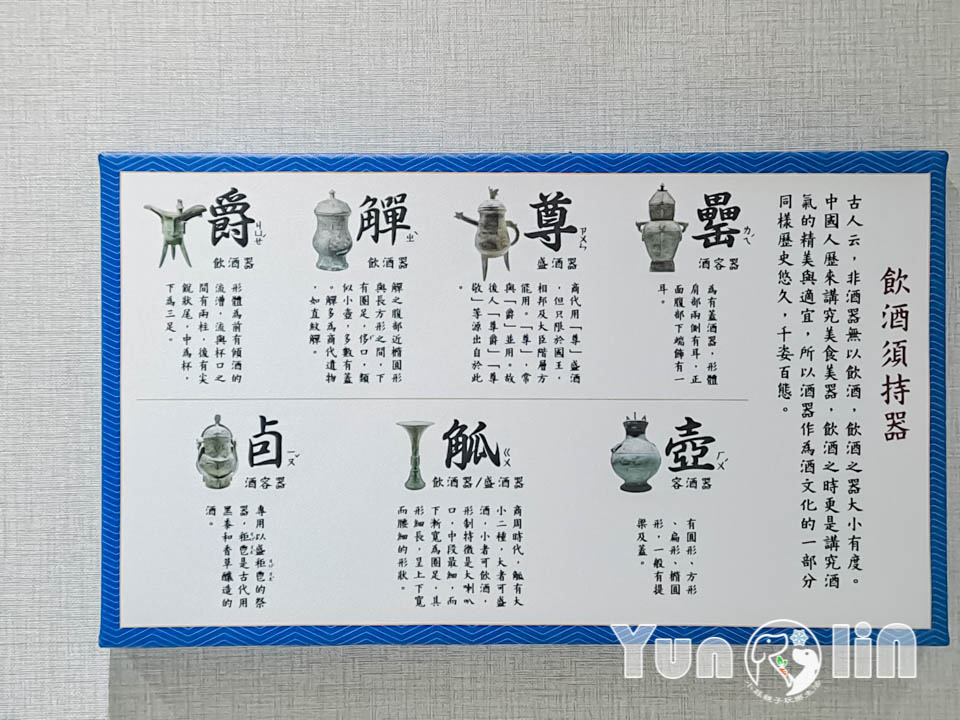 飲酒須持器
古人云，非酒器無以飲酒，飲酒之器大小有度。
中國人歷來講究美食美器，飲酒之時更是講究酒
氣的精美與適宜，所以酒器作為酒文化的一部分
同樣歷史悠久，千姿百態。
罍
ㄌㄟˊ
酒容器
為有蓋酒器，形體
肩部兩側有耳，正
面腹部下端飾有一
耳。
尊
ㄗㄨㄣ
盛酒器
商代用「尊」盛酒
，但只限於國王，
相邦及大臣階層方
能用。「尊」，常
與「爵」並用。故
後人「尊爵」「尊
敬」等源出自於此
。
觶
ㄓˋ
飲酒器
觶之腹部近橢圓形
與長方形之間，下
有圈足，侈口，類
似小壺，多數有蓋
。觶多為商代遺物
，如直紋觶。
爵
ㄐㄩㄝˊ
飲酒器
形體為前有傾酒的
流漕，流與杯口之
間有兩柱，後有尖
銳狀尾，中為杯，
下為三足。
壺
ㄏㄨˊ
容酒器
有圓形、方形
、扁形、橢圓
形，一般有提
梁及蓋。
觚
ㄍㄨ
飲酒器/盛酒器
商周時代，觚有大
小二種，大者可盛
酒，小者可飲酒，
形制特徵是大喇叭
口，中段最細，而
下漸寬為圈足，其
形細長，呈上下寬
而腰細的形狀。
卣
ㄧㄡˇ
酒容器
專用以盛秬鬯的祭
器，秬鬯是古代用
黑黍和香草釀造的
酒。
YunliN